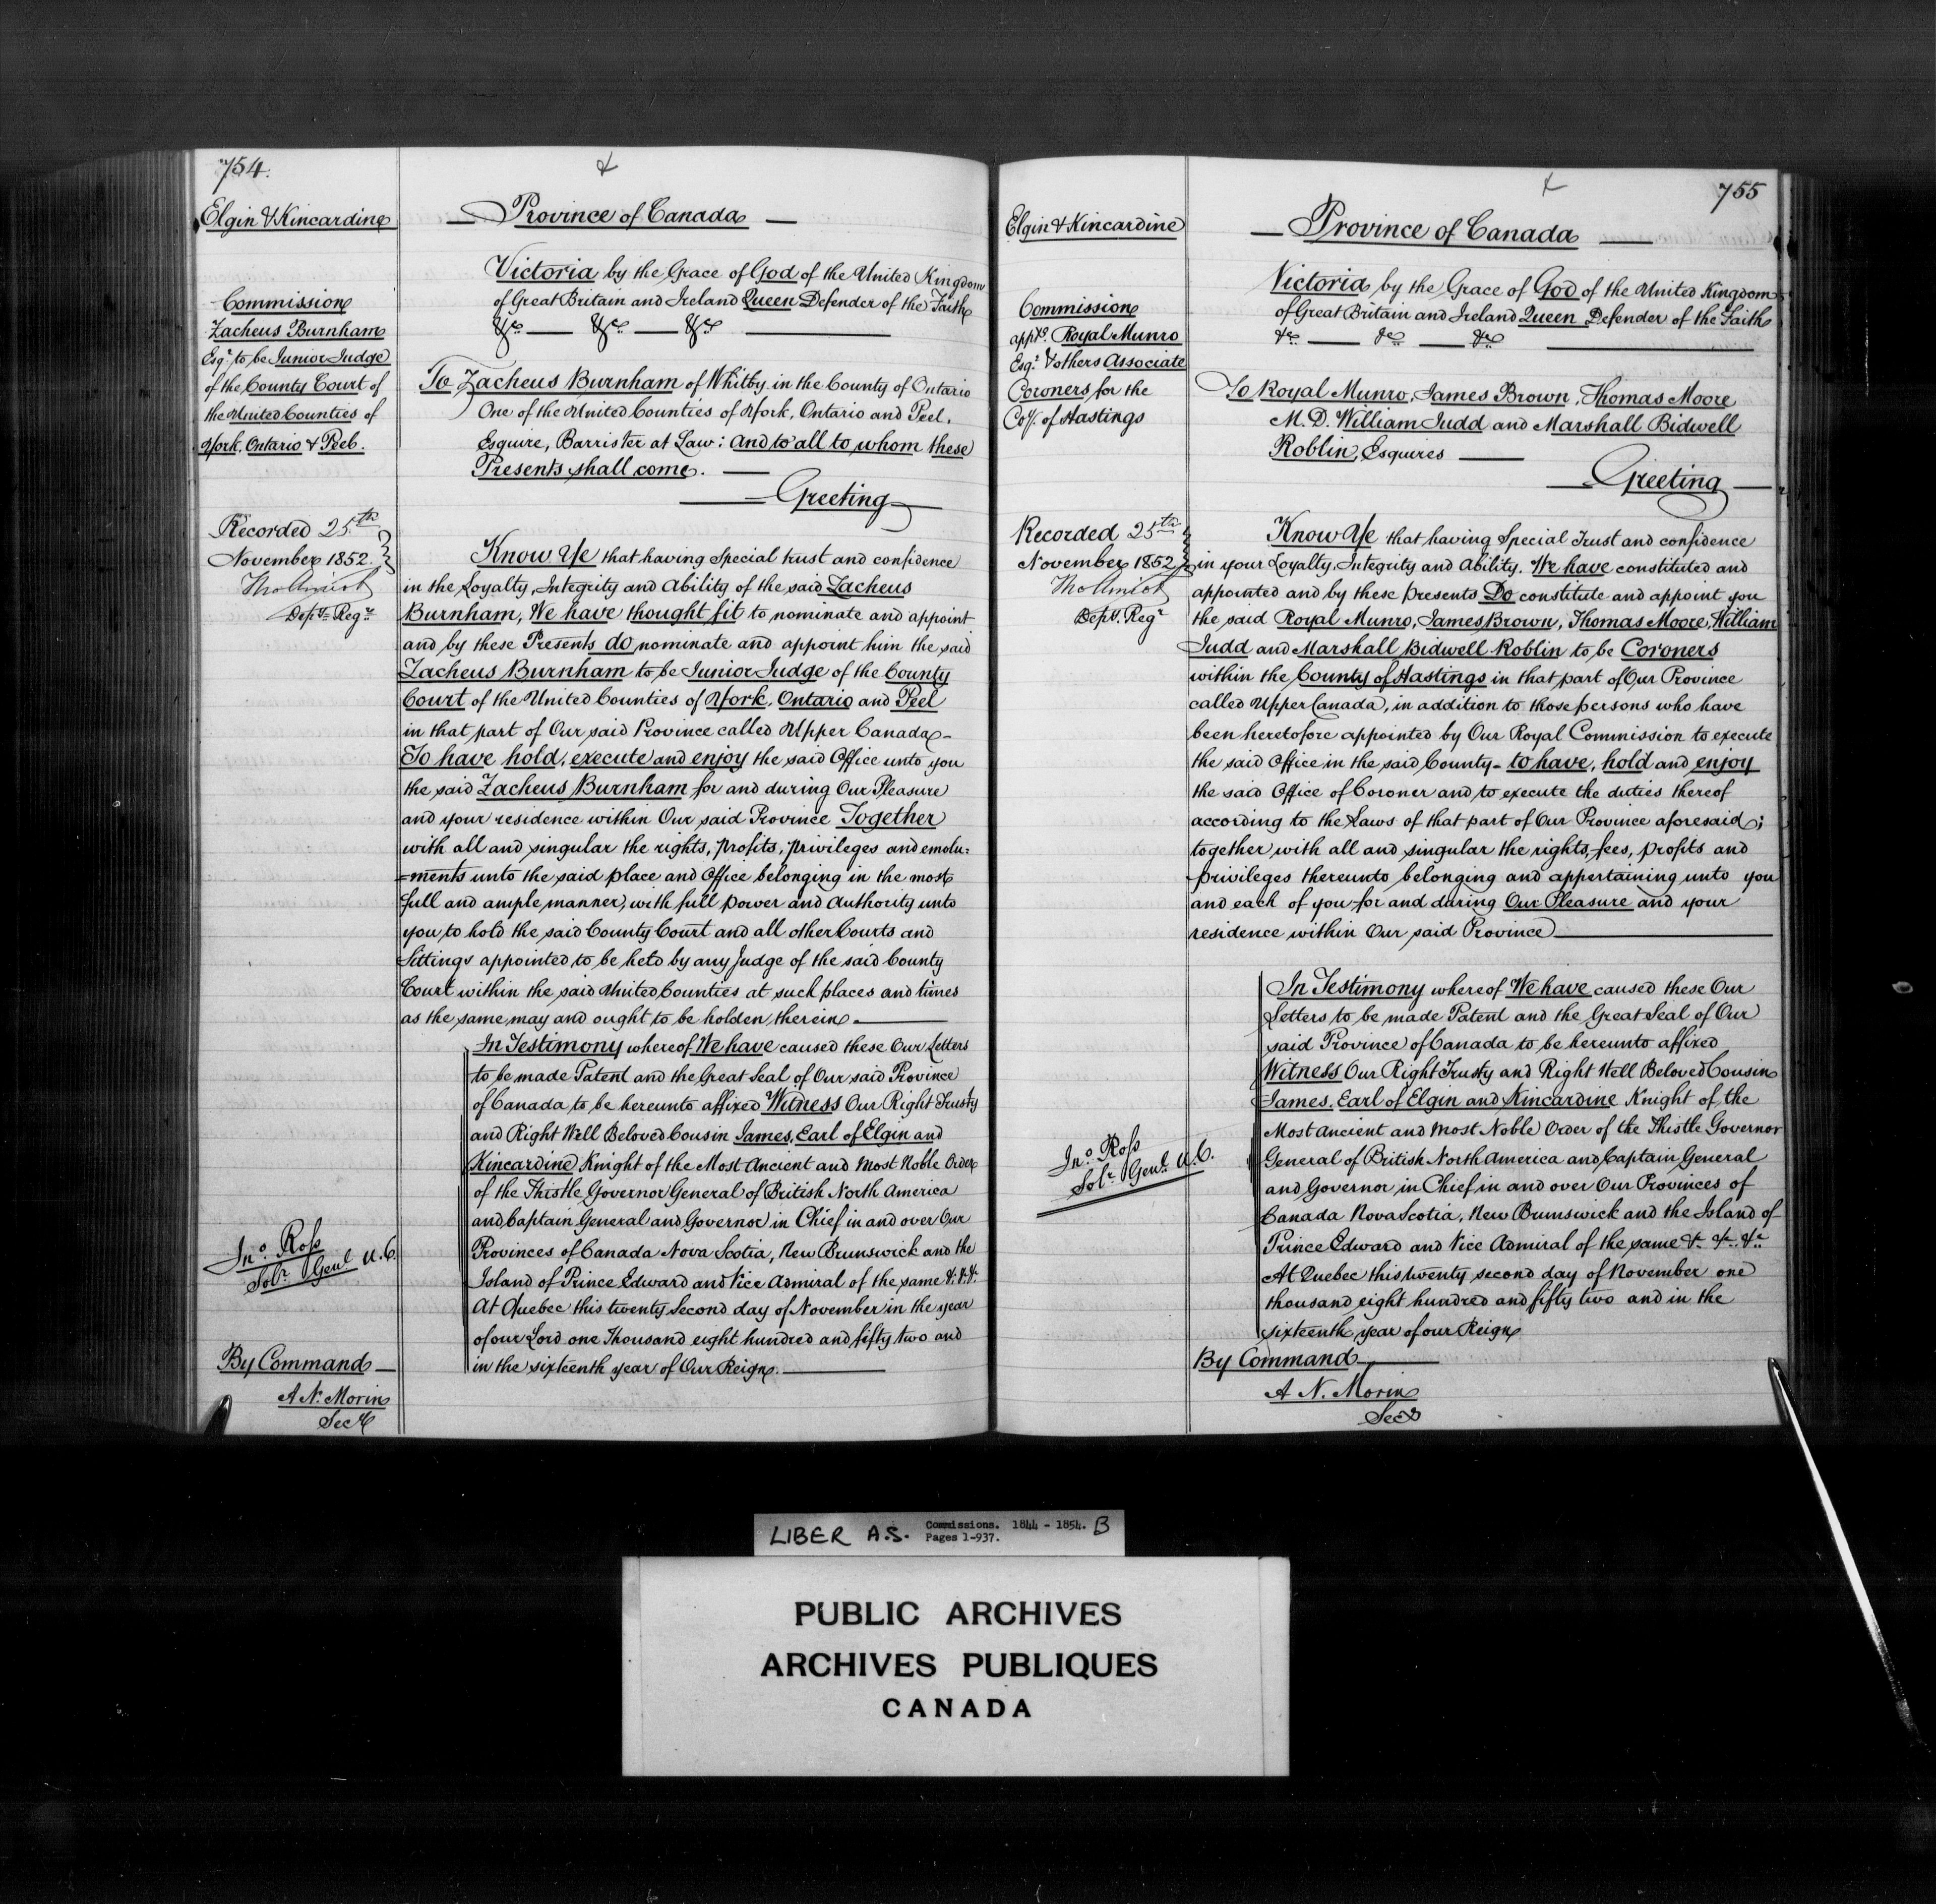 754.
Elgin & Kincardine
Commission
Zacheus Burnham
Esqr. to be Junior Judge
of the County Court of
the United Counties of
York, Ontario & Peel.
Recorded 25th
November 1852.
Tho Amiot
Depy. Regr.
Jno. Ross
Solr. Genl U.C.
By Command
A N. Morin
Secy
Province of Canada
Victoria by the Grace of God of the United Kingdom
of Great Britain and Ireland Queen Defender of the Faith
&c &c &c
To Zacheus Burnham of Whitby in the County of Ontario
One of the United Counties of York, Ontario and Peel,
Esquire, Barrister at Law: and to all to whom these
Presents shall come.
Greeting
Know Ye that having Special trust and confidence
in the Loyalty, Integrity and Ability of the said Zacheus
Burnham, We have thought fit to nominate and appoint
and by these Presents do nominate and appoint him the said
Zacheus Burnham to be Junior Judge of the County
Court of the United Counties of York, Ontario and Peel
in that part of Our said Province called Upper Canada-
To have hold, execute and enjoy the said Office unto you
the said Zacheus Burnham for and during Our Pleasure
and your residence within Our said Province Together
with all and singular the rights, profits, privileges and emolu=
=ments unto the said place and Office belonging in the most
full and ample manner, with full power and Authority unto
you to hold the said County Court and all other Courts and
Sittings appointed to be held by any Judge of the said County
Court within the said United Counties at such places and times
as the same may and ought to be holden, therein.
In Testimony whereof We have caused these Our Letters
to be made Patent and the Great Seal of Our said Province
of Canada to be hereunto affixed Witness Our Right Trusty
and Right Well Beloved Cousin James, Earl of Elgin and
Kincardine Knight of the Most Ancient and Most Noble Order
of the Thistle Governor General of British North America
and Captain General and Governor in Chief in and over Our
Provinces of Canada Nova Scotia, New Brunswick and the
Island of Prince Edward and Vice Admiral of the same &. &. &.
At Quebec this twenty second day of November in the year
of our Lord one Thousand eight hundred and fifty two and
in the sixteenth year of Our Reign.
755
Elgin & Kincardine
Commission
apptg. Royal Munro
Esqr. & others Associate
Coroners for the
Coy. of Hastings
Recorded 25th
November 1852
Tho Amiot
Depy. Regr
Jno. Ross
Solr Genl. U.C.
Province of Canada
Victoria by the Grace of God of the United Kingdom
of Great Britain and Ireland Queen Defender of the Faith
&c &c &c
To Royal Munro, James Brown, Thomas Moore
M.D. William Judd and Marshall Bidwell
Roblin, Esquires
Greeting
Know Ye that having Special Trust and confidence
in your Loyalty, Integrity and Ability. We have constituted and
appointed and by these presents Do constitute and appoint you
the said Royal Munro, James Brown, Thomas Moore, William
Judd and Marshall Bidwell Roblin to be Coroners
within the County of Hastings in that part of Our Province
called Upper Canada, in addition to those persons who have
been heretofore appointed by Our Royal Commission to execute
the said Office in the said County- to have, hold and enjoy
the said Office of Coroner and to execute the duties thereof
according to the Laws of that part of Our Province aforesaid;
together with all and singular the rights, fees, profits and
privileges thereunto belonging and appertaining unto you
and each of you for and during Our Pleasure and your
residence within Our said Province
In Testimony whereof We have caused these Our
Letters to be made Patent and the Great Seal of Our
said Province of Canada to be hereunto affixed
Witness Our Right Trusty and Right Well Beloved Cousin
James, Earl of Elgin and Kincardine Knight of the
Most Ancient and Most Noble Order of the Thistle Governor
General of British North America and Captain General
and Governor in Chief in and over Our Provinces of
Canada Nova Scotia, New Brunswick and the Island of
Prince Edward and Vice Admiral of the same &c. &c. &c
At Quebec this twenty second day of November one
thousand eight hundred and fifty two and in the
sixteenth year of our Reign
By Command
A N. Morin
Secy
LIBER A.S. Commissions. 1844 - 1854. B
Pages 1-937.
PUBLIC ARCHIVES
ARCHIVES PUBLIQUES
CANADA